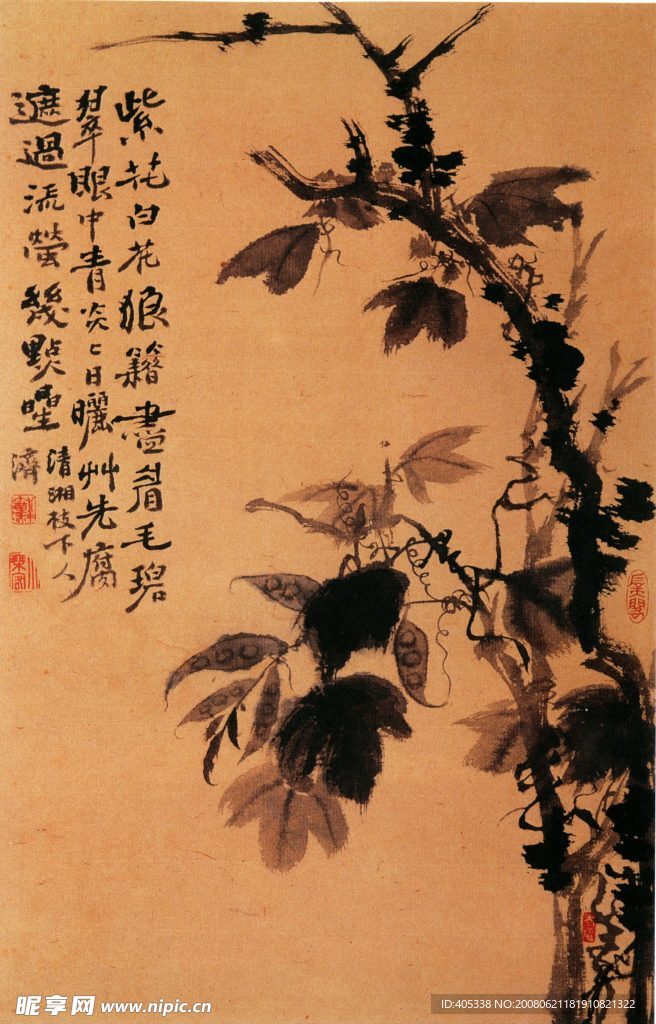 紫花白花狼籍盡眉毛碧
翠眼中青炎〻日曬艸先腐
遮過流螢幾點星
清湘枝下人
濟
昵享网 www.nipic.cn
ID:405338 NO:20080621181910821322